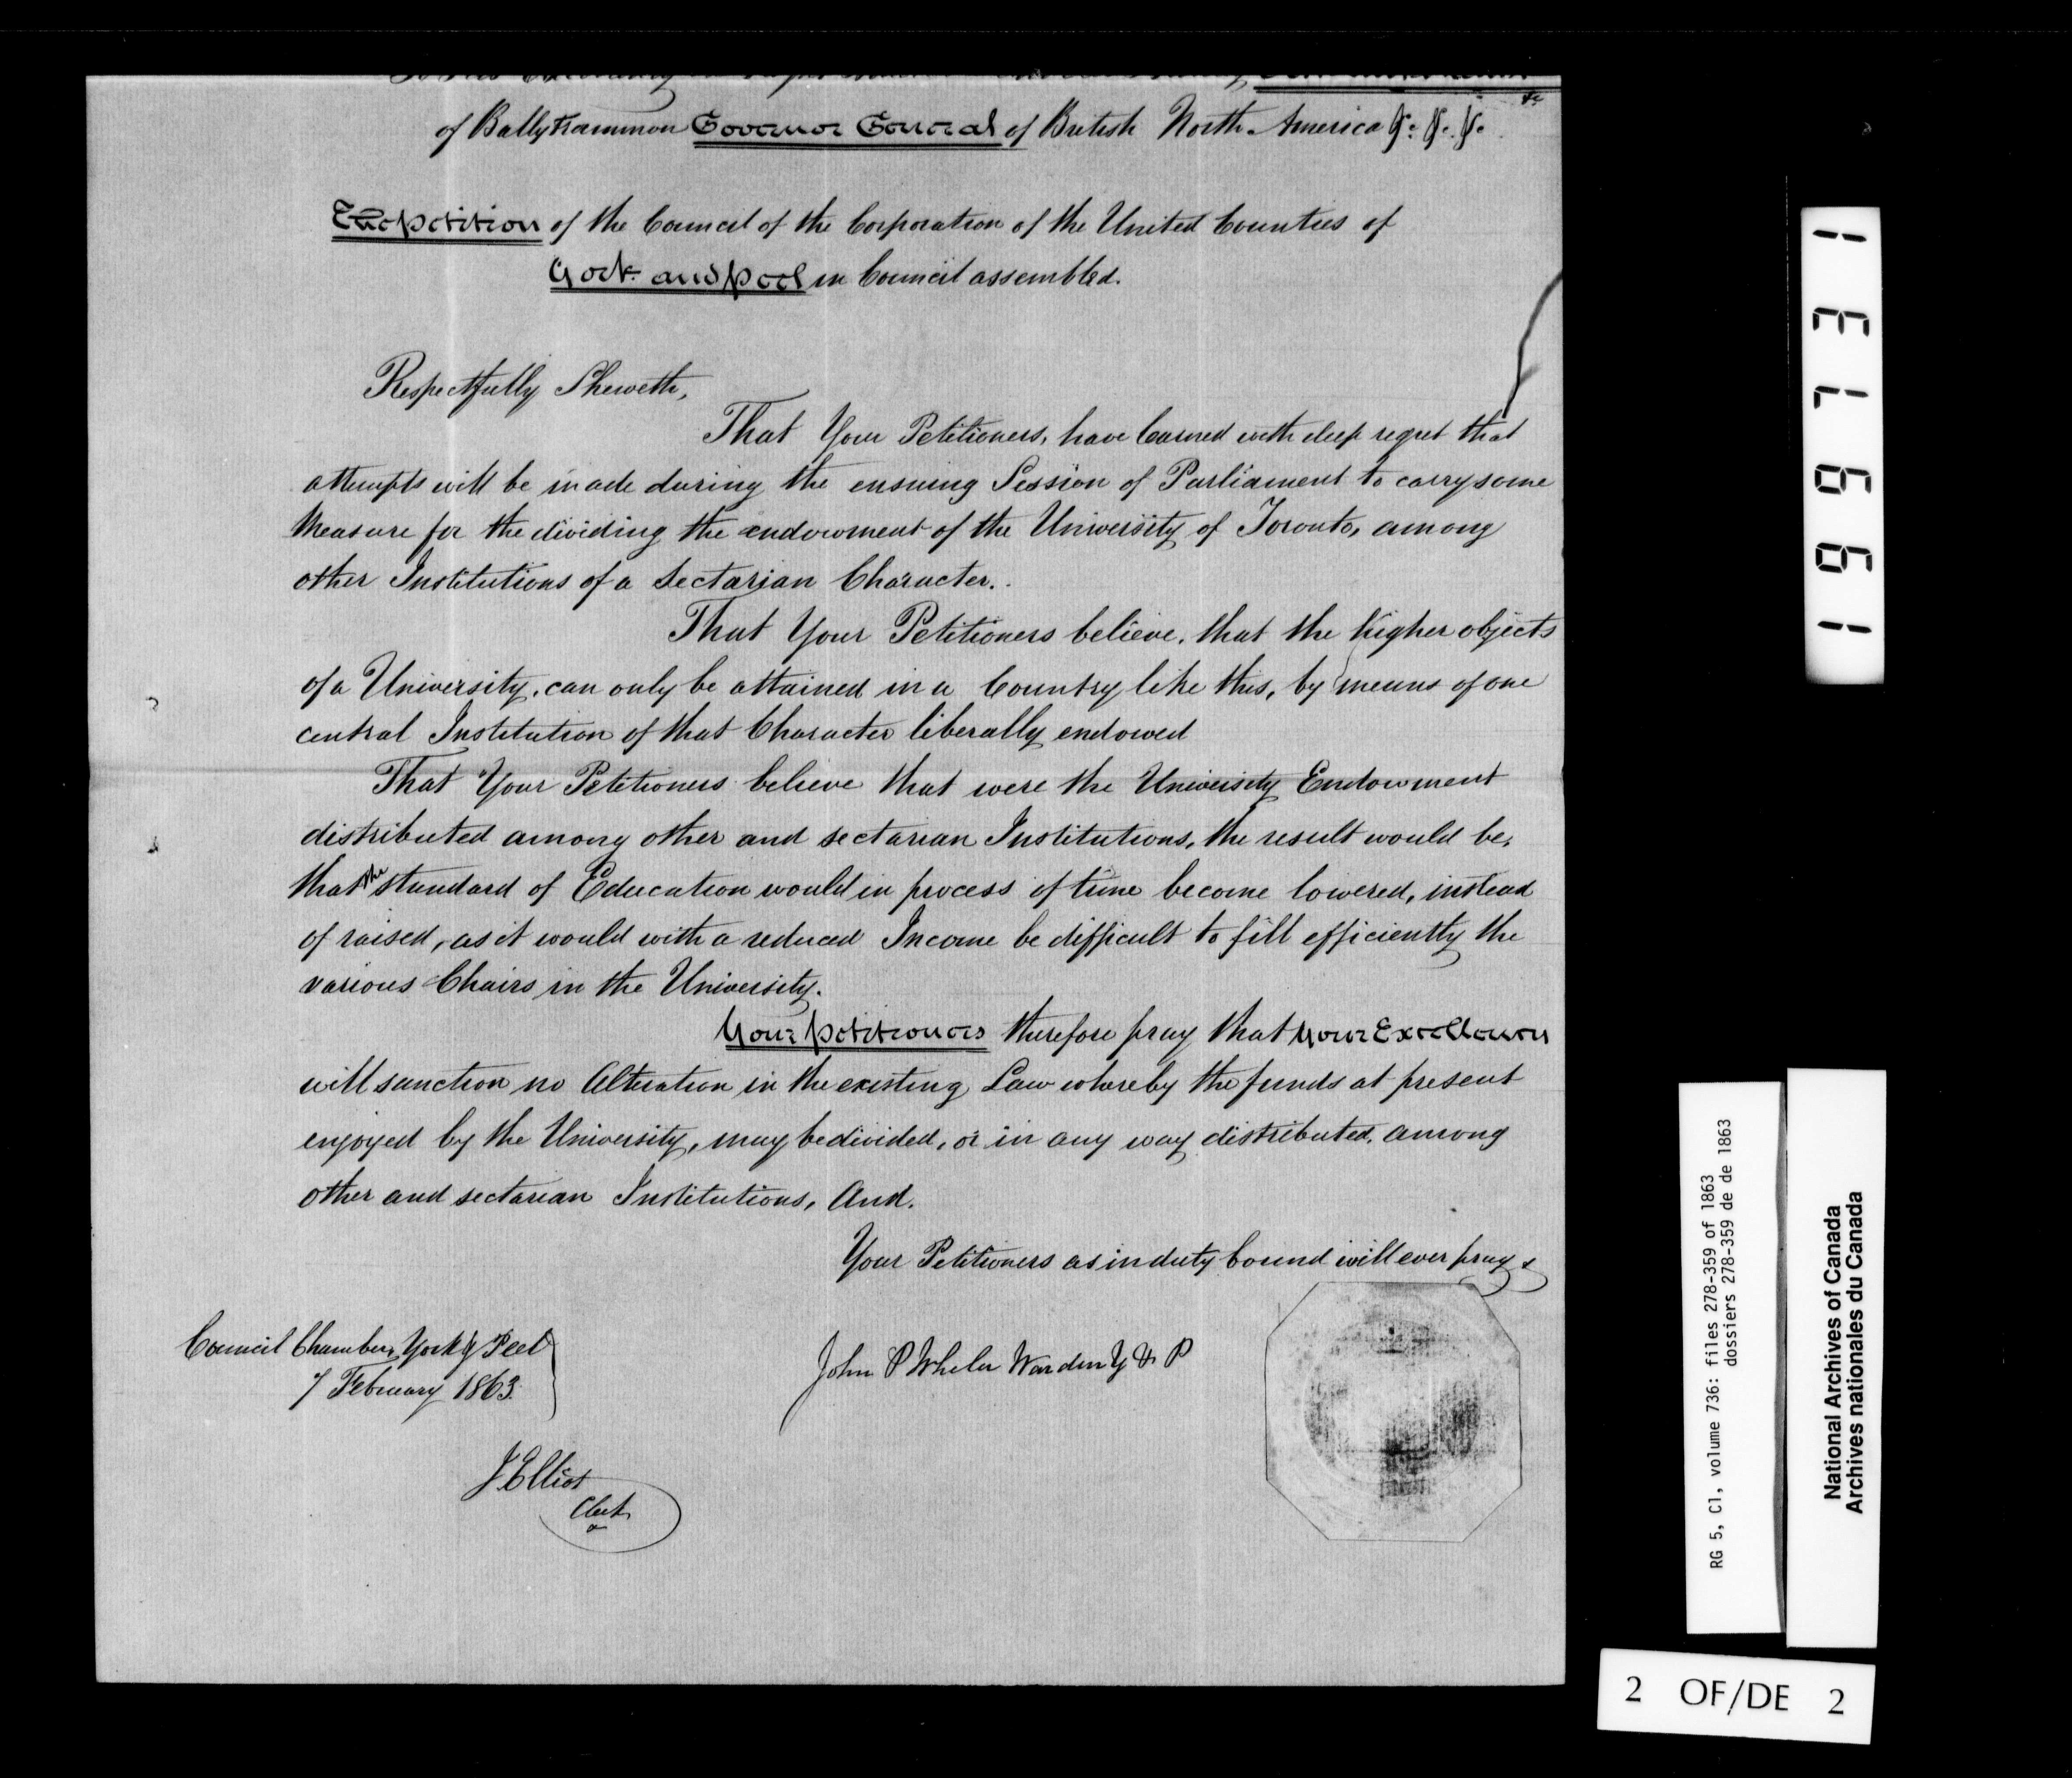 of Ballytrammon Governor General of British North America &c. &c. &c.
&c
The petition of the Council of the Corporation of the United Counties of
York and peel in Council assembled.
Respectfully Sheweth,
That Your Petitioners, have learned with deep regret that
attempts will be made during the ensuing Session of Parliament to carry some
Measure for the dividing the endowment of the University of Toronto, among
other Institutions of a Sectarian Character.
That Your Petitioners believe, that the higher objects
of a University, can only be attained in a Country like this, by means of one
central Institution of that Character liberally endowed
That Your Petitioners believe that were the University Endowment
distributed among other and sectarian Institutions, the result would be,
that the standard of Education would in process of time become lowered, instead
of raised, as it would with a reduced Income be difficult to fill efficiently the
various Chairs in the University.
Your petitioners therefore pray that your Excellency
will sanction no Alteration in the existing Law whereby the funds at present
enjoyed by the University, may be divided, or in any way distributed, among
other and sectarian Institutions, And.
Your Petitioners as in duty bound will ever pray
Council Chamber, York & Peel
7 February 1863.
John P Wheler Warden Y & P
J. Elliot
Clerk
196731
RG 5, C1, volume 736: files 278-359 of 1863
dossiers 278-359 de de 1863
National Archives of Canada
Archives nationales du Canada
2 OF/DE 2